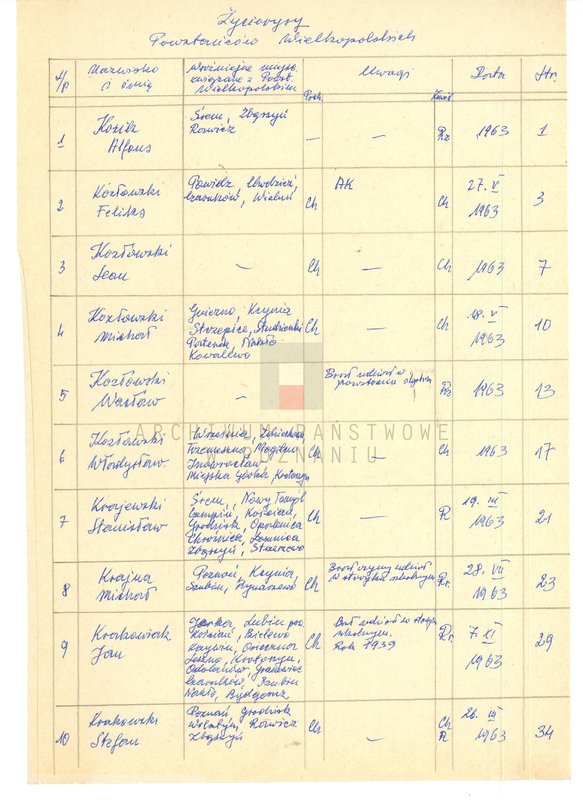 Życiorysy
Powstańców Wielkopolskich
L/p
Nazwisko i imię
Ważniejsze miejsc. związane z Powst. Wielkopolskim
Poch.
Uwagi
Data
Str.
1
Kozik Alfons
Śrem, Zbąszyń
Rawicz
—
—
Rz
1963
1
2
Kozłowski Feliks
Powidz,
Czarnków, Wieluń
Ch
AK
Ch
27. V 1963
3
3
Kozłowski Leon
—
Ch
—
Ch
1963
7
4
Kozłowski Michał
Gniezno, Kcynia
Strzepice, Studzienki
Nakło
Kowalewo
Ch
—
Ch
18. V 1963
10
5
Kozłowski Wacław
—
Brał udział w
powstaniu śląskim
Rz
1963
13
ARCHIWUM PAŃSTWOWE
W POZNANIU
6
Kozłowski Władysław
Września,
Trzemeszno, Mogilno
Inowrocław
Miejska Górka, Krotoszyn
Ch
—
Ch
1963
17
7
Krajewski Stanisław
Śrem, Nowy Tomyśl
Kościan,
Grodzisk, Opalenica
Chrośnica, Łomnica
Zbąszyń, Strzyżewo
Ch
—
R
19. III 1963
21
8
Krajna Michał
Poznań, Kcynia,
Szubin, Rynarzewo
Ch
Brał czynny udział
w strajku szkolnym
Rz.
28. VII 1963
23
9
Krakowiak Jan
Jarka, Lubiń pow.
Kościań,
Osieczna
Leszno, Krotoszyn,
Odolanów,
Czarnków, Szubin
Nakło, Bydgoszcz
Ch
Brał udział w strajku
szkolnym.
Rok 1939
Rz.
7. II 1963
29
10
Krakowski Stefan
Poznań, Grodzisk
Wolsztyn, Rawicz
Zbąszyń
Ch
—
Ch
R
26. III 1963
34